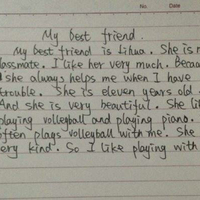 No.
Date
My best friend.
My best friend is Lihua. She is m
classmate. I like her very much. Becau
she always helps me when I have
trouble. She is eleven years old.
And she is very beautiful. She li
playing volleyball and playing piano.
often plays volleyball with me. She
ery kind. So I like playing with